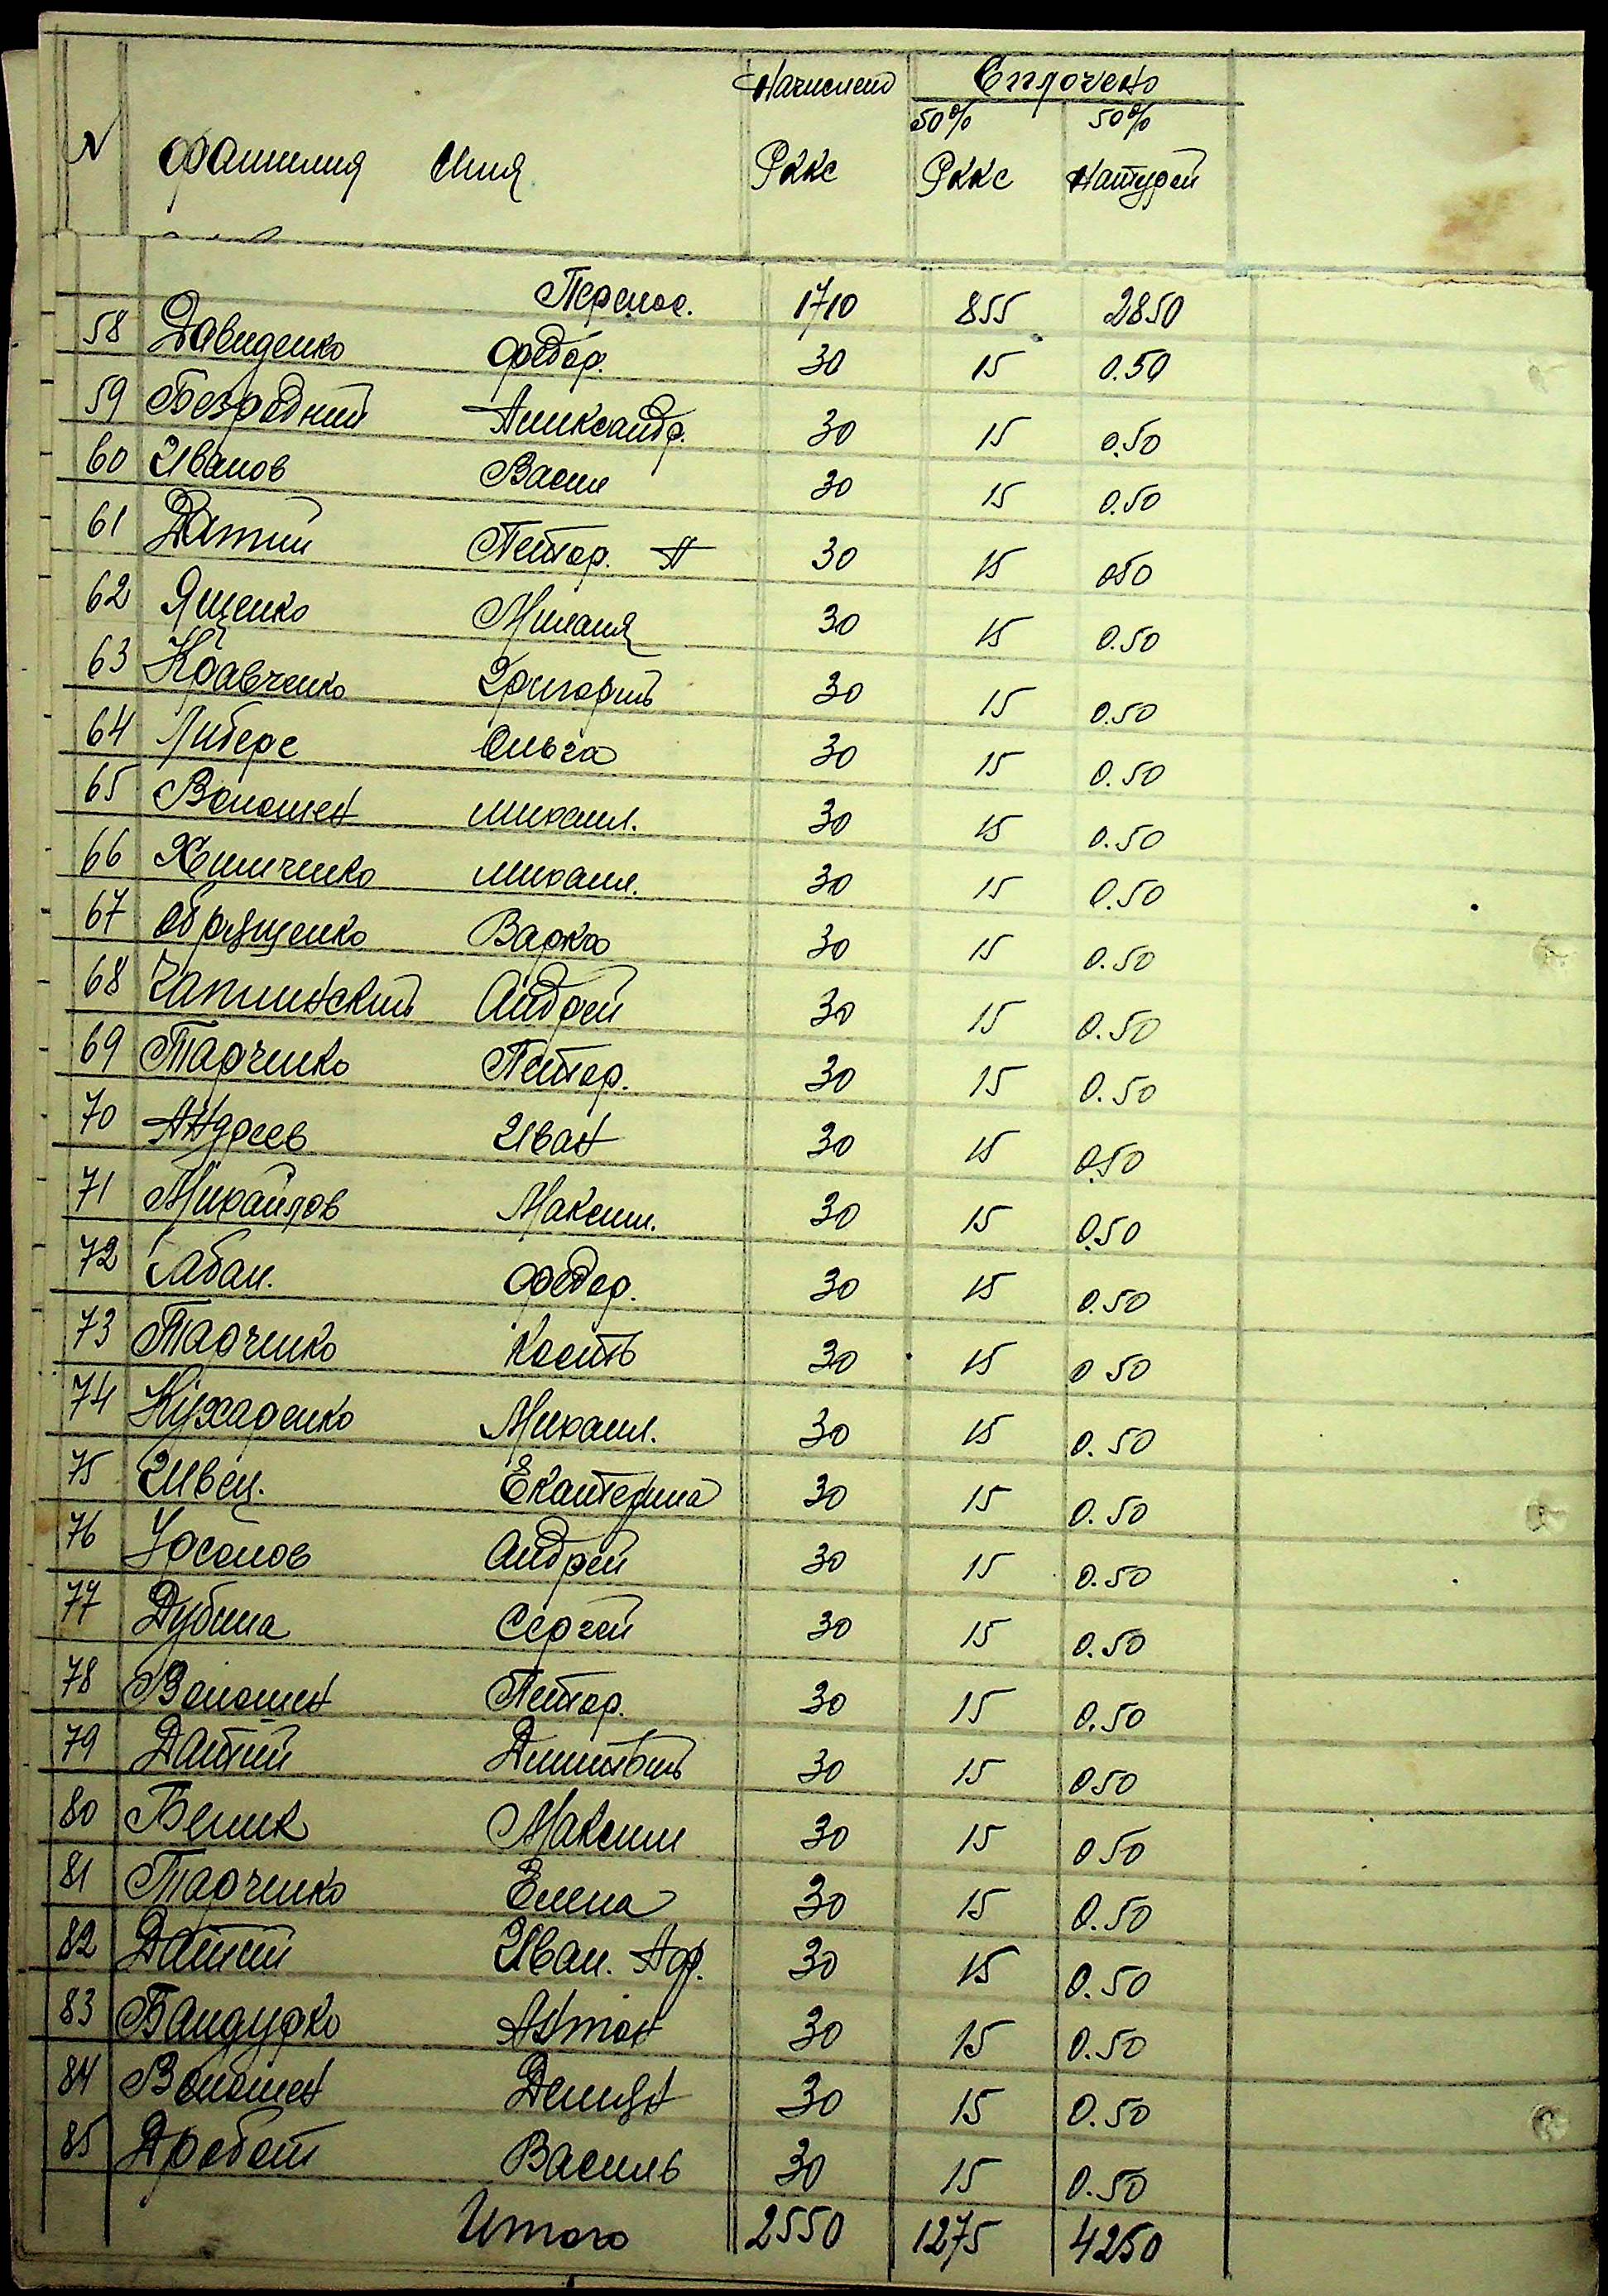 Начислено Сплочено
50% 50%
N Фамилия Имя Рккс Рккс Натурой
Перенос. 1710 855 2850
58 Давиденко Федор. 30 15 0.50
59 Безродний Аликсандр. 30 15 0.50
60 Иванов Васил 30 15 0.50
61 Датий Петтор. А 30 15 050
62 Ященко Михаил 30 15 0.50
63 Кравченко Григорий 30 15 0.50
64 Либере Ольга 30 15 0.50
65 Волошен михаил. 30 15 0.50
66 Химченко михаил. 30 15 0.50
67 Обрященко Варка 30 15 0.50
68 Чаплинский Андрей 30 15 0.50
69 Тарченко Петтор. 30 15 0.50
70 Андреев Иван 30 15 0.50
71 Михайлов Максим. 30 15 0.50
72 Сабан. Федор. 30 15 0.50
73 Тарченко Кость 30 15 0 50
74 Кухаренко Михаил. 30 15 0. 50
75 Швец. Екатерина 30 15 0. 50
76 Усолов Андрей 30 15 0.50
77 Дубина Сергей 30 15 0.50
78 Волошен Петтор. 30 15 0.50
79 Датий Дмитрий 30 15 050
80 Белик Максим 30 15 0 50
81 Тарченко Елена 30 15 0.50
82 Датий Иван. Аф. 30 15 0.50
83 Бандурко Антон 30 15 0.50
84 Волошен Демян 30 15 0.50
85 Дробот Василь 30 15 0.50
Итого 2550 1275 4250